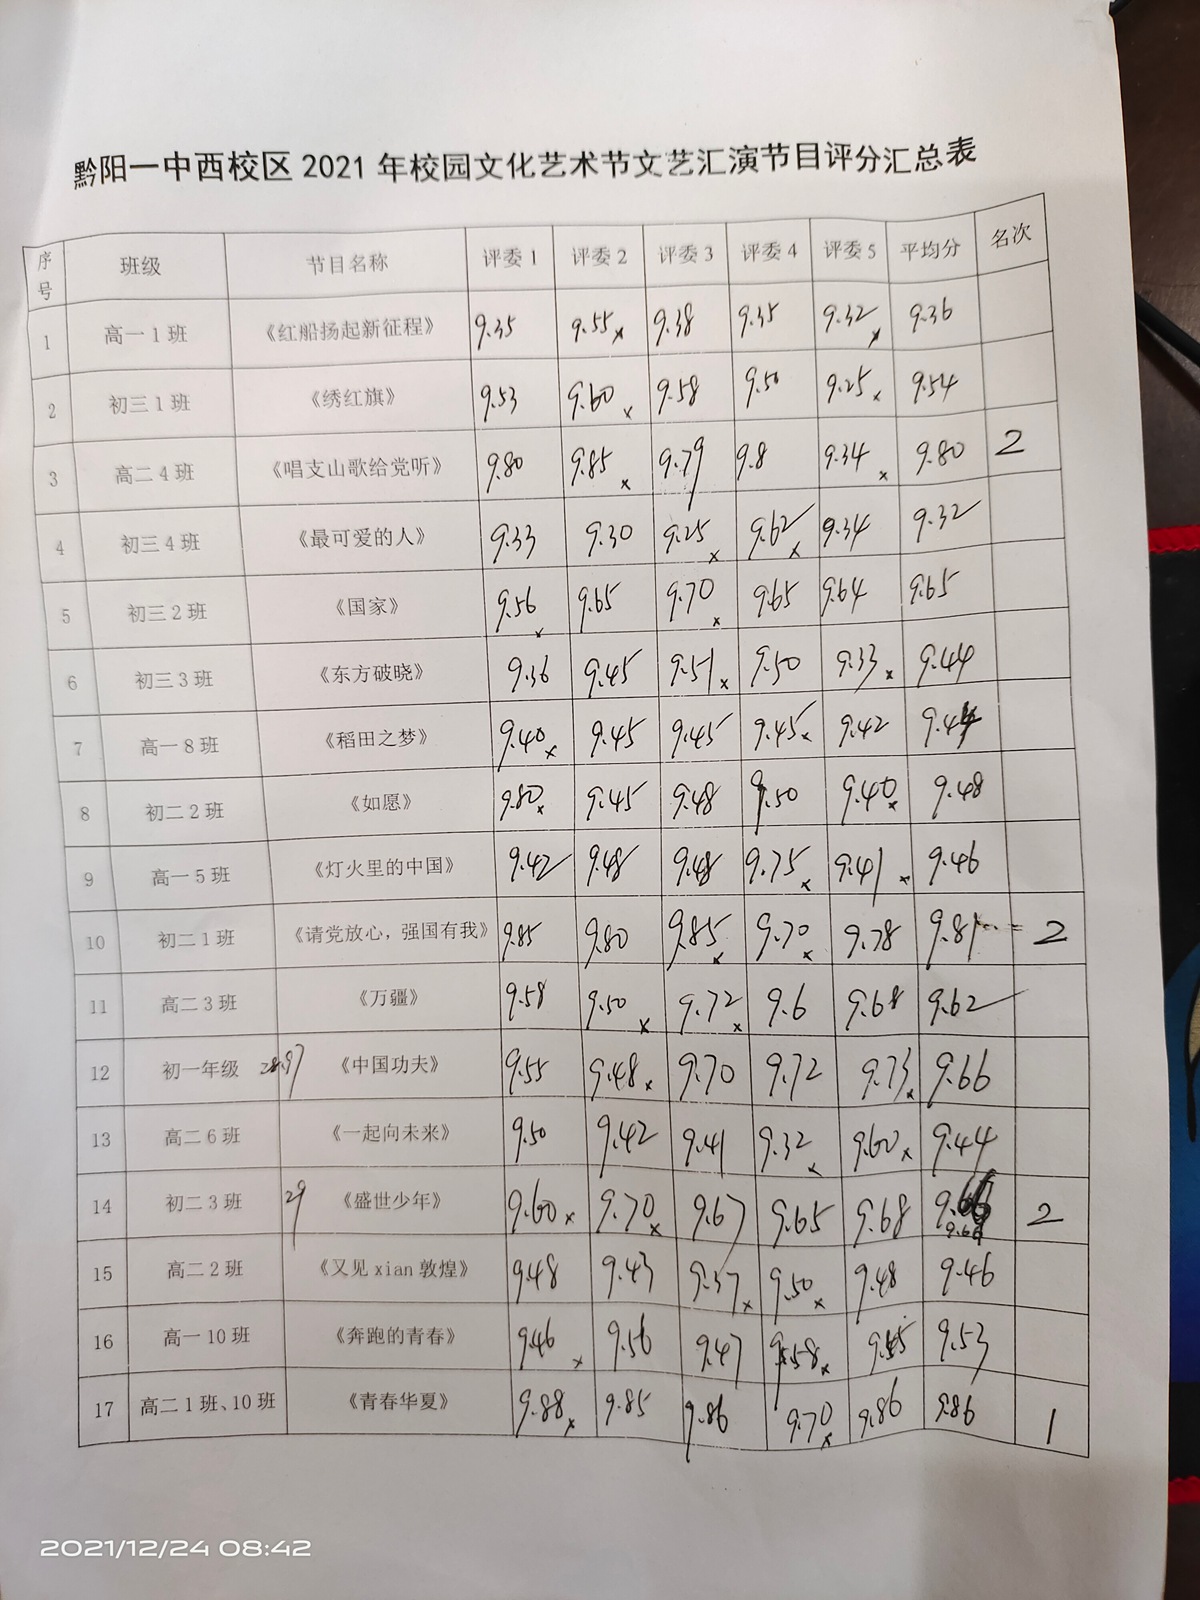 黔阳一中西校区 2021 年校园文化艺术节文艺汇演节目评分汇总表
序号 班级 节目名称 评委 1 评委 2 评委 3 评委 4 评委 5 平均分 名次
1 高一 1 班 《红船扬起新征程》 9.35 9.55 x 9.38 9.35 9.32 x 9.36
2 初三 1 班 《绣红旗》 9.53 9.60 x 9.58 9.50 9.25 x 9.54
3 高二 4 班 《唱支山歌给党听》 9.80 9.85 x 9.79 9.8 9.34 x 9.80 2
4 初三 4 班 《最可爱的人》 9.33 9.30 9.25 x 9.62 x 9.34 9.32
5 初三 2 班 《国家》 9.56 x 9.65 9.70 x 9.65 9.64 9.65
6 初三 3 班 《东方破晓》 9.36 9.45 9.51 x 9.50 9.33 x 9.44
7 高一 8 班 《稻田之梦》 9.40 x 9.45 9.45 9.45 x 9.42 9.44
8 初二 2 班 《如愿》 9.80 x 9.45 9.48 9.50 9.40 x 9.48
9 高一 5 班 《灯火里的中国》 9.42 9.48 9.48 9.75 x 9.41 x 9.46
10 初二 1 班 《请党放心，强国有我》 9.85 9.80 9.85 x 9.70 x 9.78 9.81 2
11 高二 3 班 《万疆》 9.58 9.50 x 9.72 x 9.6 9.68 9.62
12 初一年级 28.97 《中国功夫》 9.55 9.48 x 9.70 9.72 9.73 x 9.66
13 高二 6 班 《一起向未来》 9.50 9.42 9.41 9.32 x 9.60 x 9.44
14 初二 3 班 29 《盛世少年》 9.60 x 9.70 x 9.67 9.65 9.68 2
15 高二 2 班 《又见 xian 敦煌》 9.48 9.43 9.37 x 9.50 x 9.48 9.46
16 高一 10 班 《奔跑的青春》 9.46 x 9.56 9.47 9.58 x 9.55 9.53
17 高二 1 班、10 班 《青春华夏》 9.88 x 9.85 9.86 9.70 x 9.86 9.86 1
2021/12/24 08:42